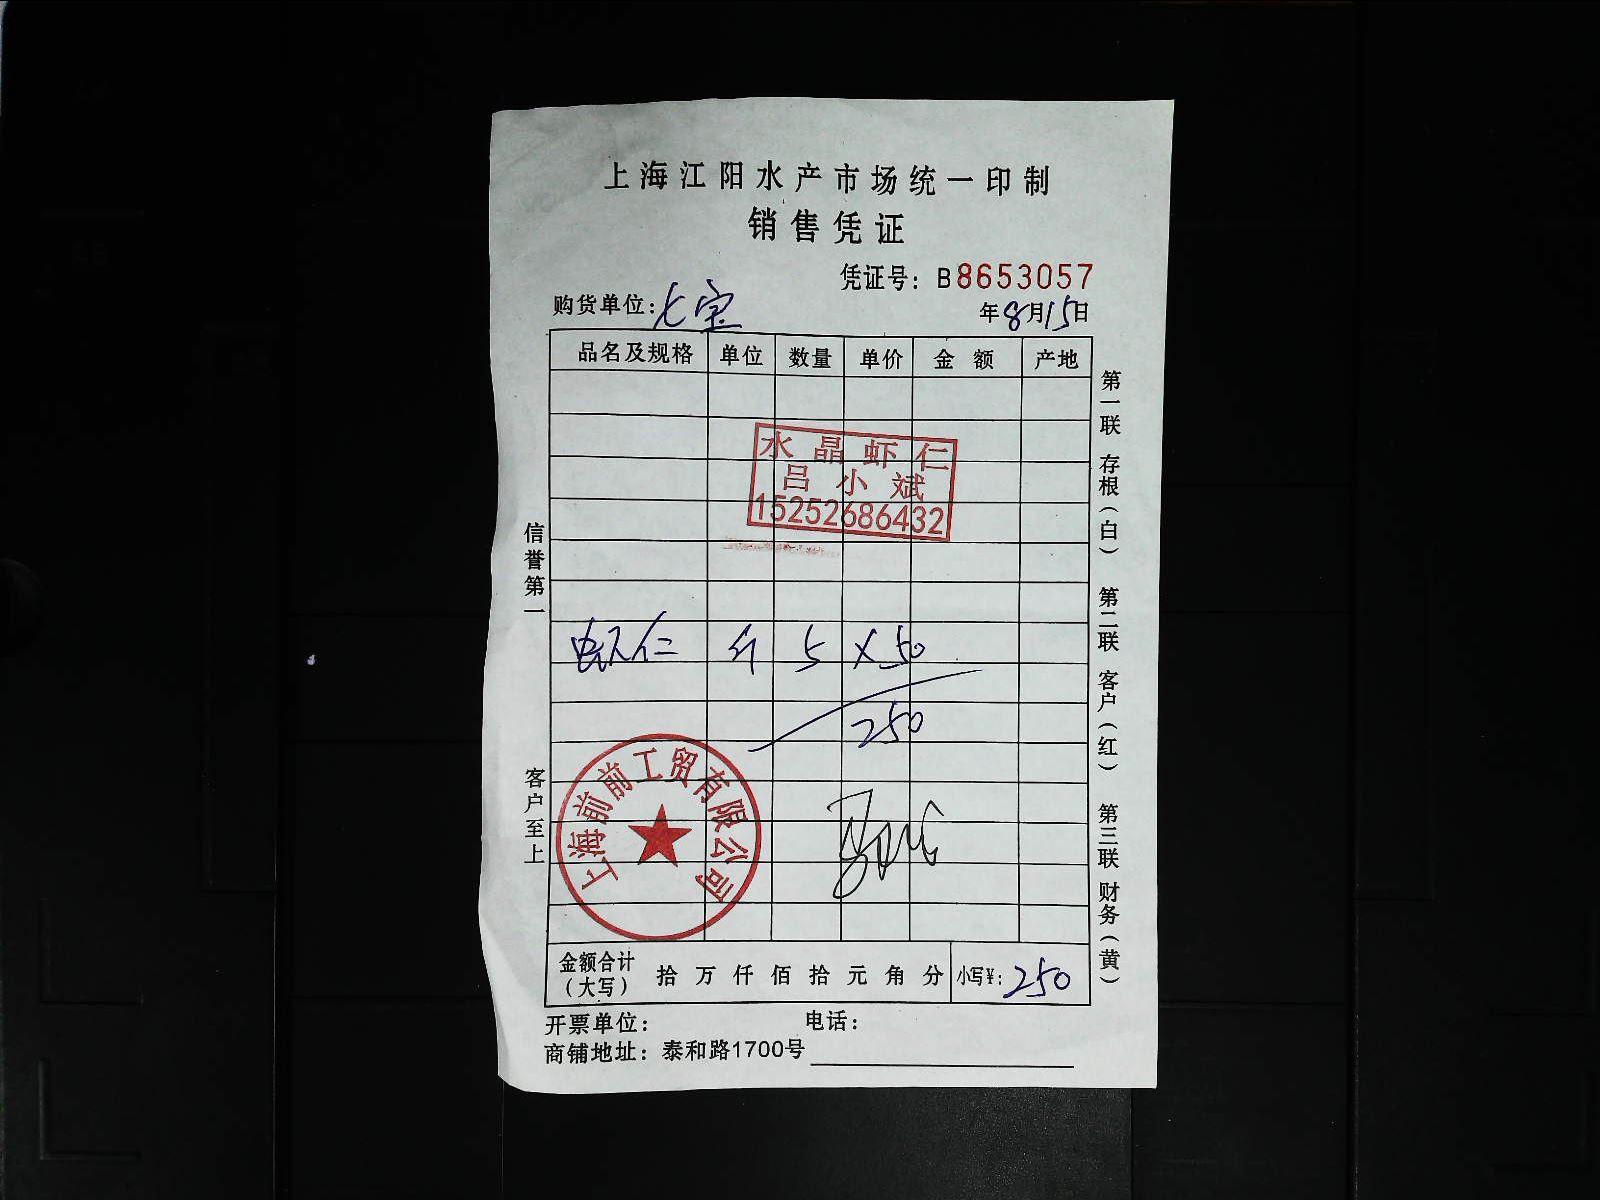 上海江阳水产市场统一印制
销售凭证
凭证号：B8653057
购货单位：七宝
年8月15日
品名及规格 单位 数量 单价 金额 产地
水晶虾仁
吕小斌
15252686432
虾仁 斤 5 ×50
250
上海前前工贸有限公司
金额合计（大写） 拾 万 仟 佰 拾 元 角 分 小写¥：250
开票单位： 电话：
商铺地址：泰和路1700号
信誉第一 客户至上
第一联 存根（白） 第二联 客户（红） 第三联 财务（黄）